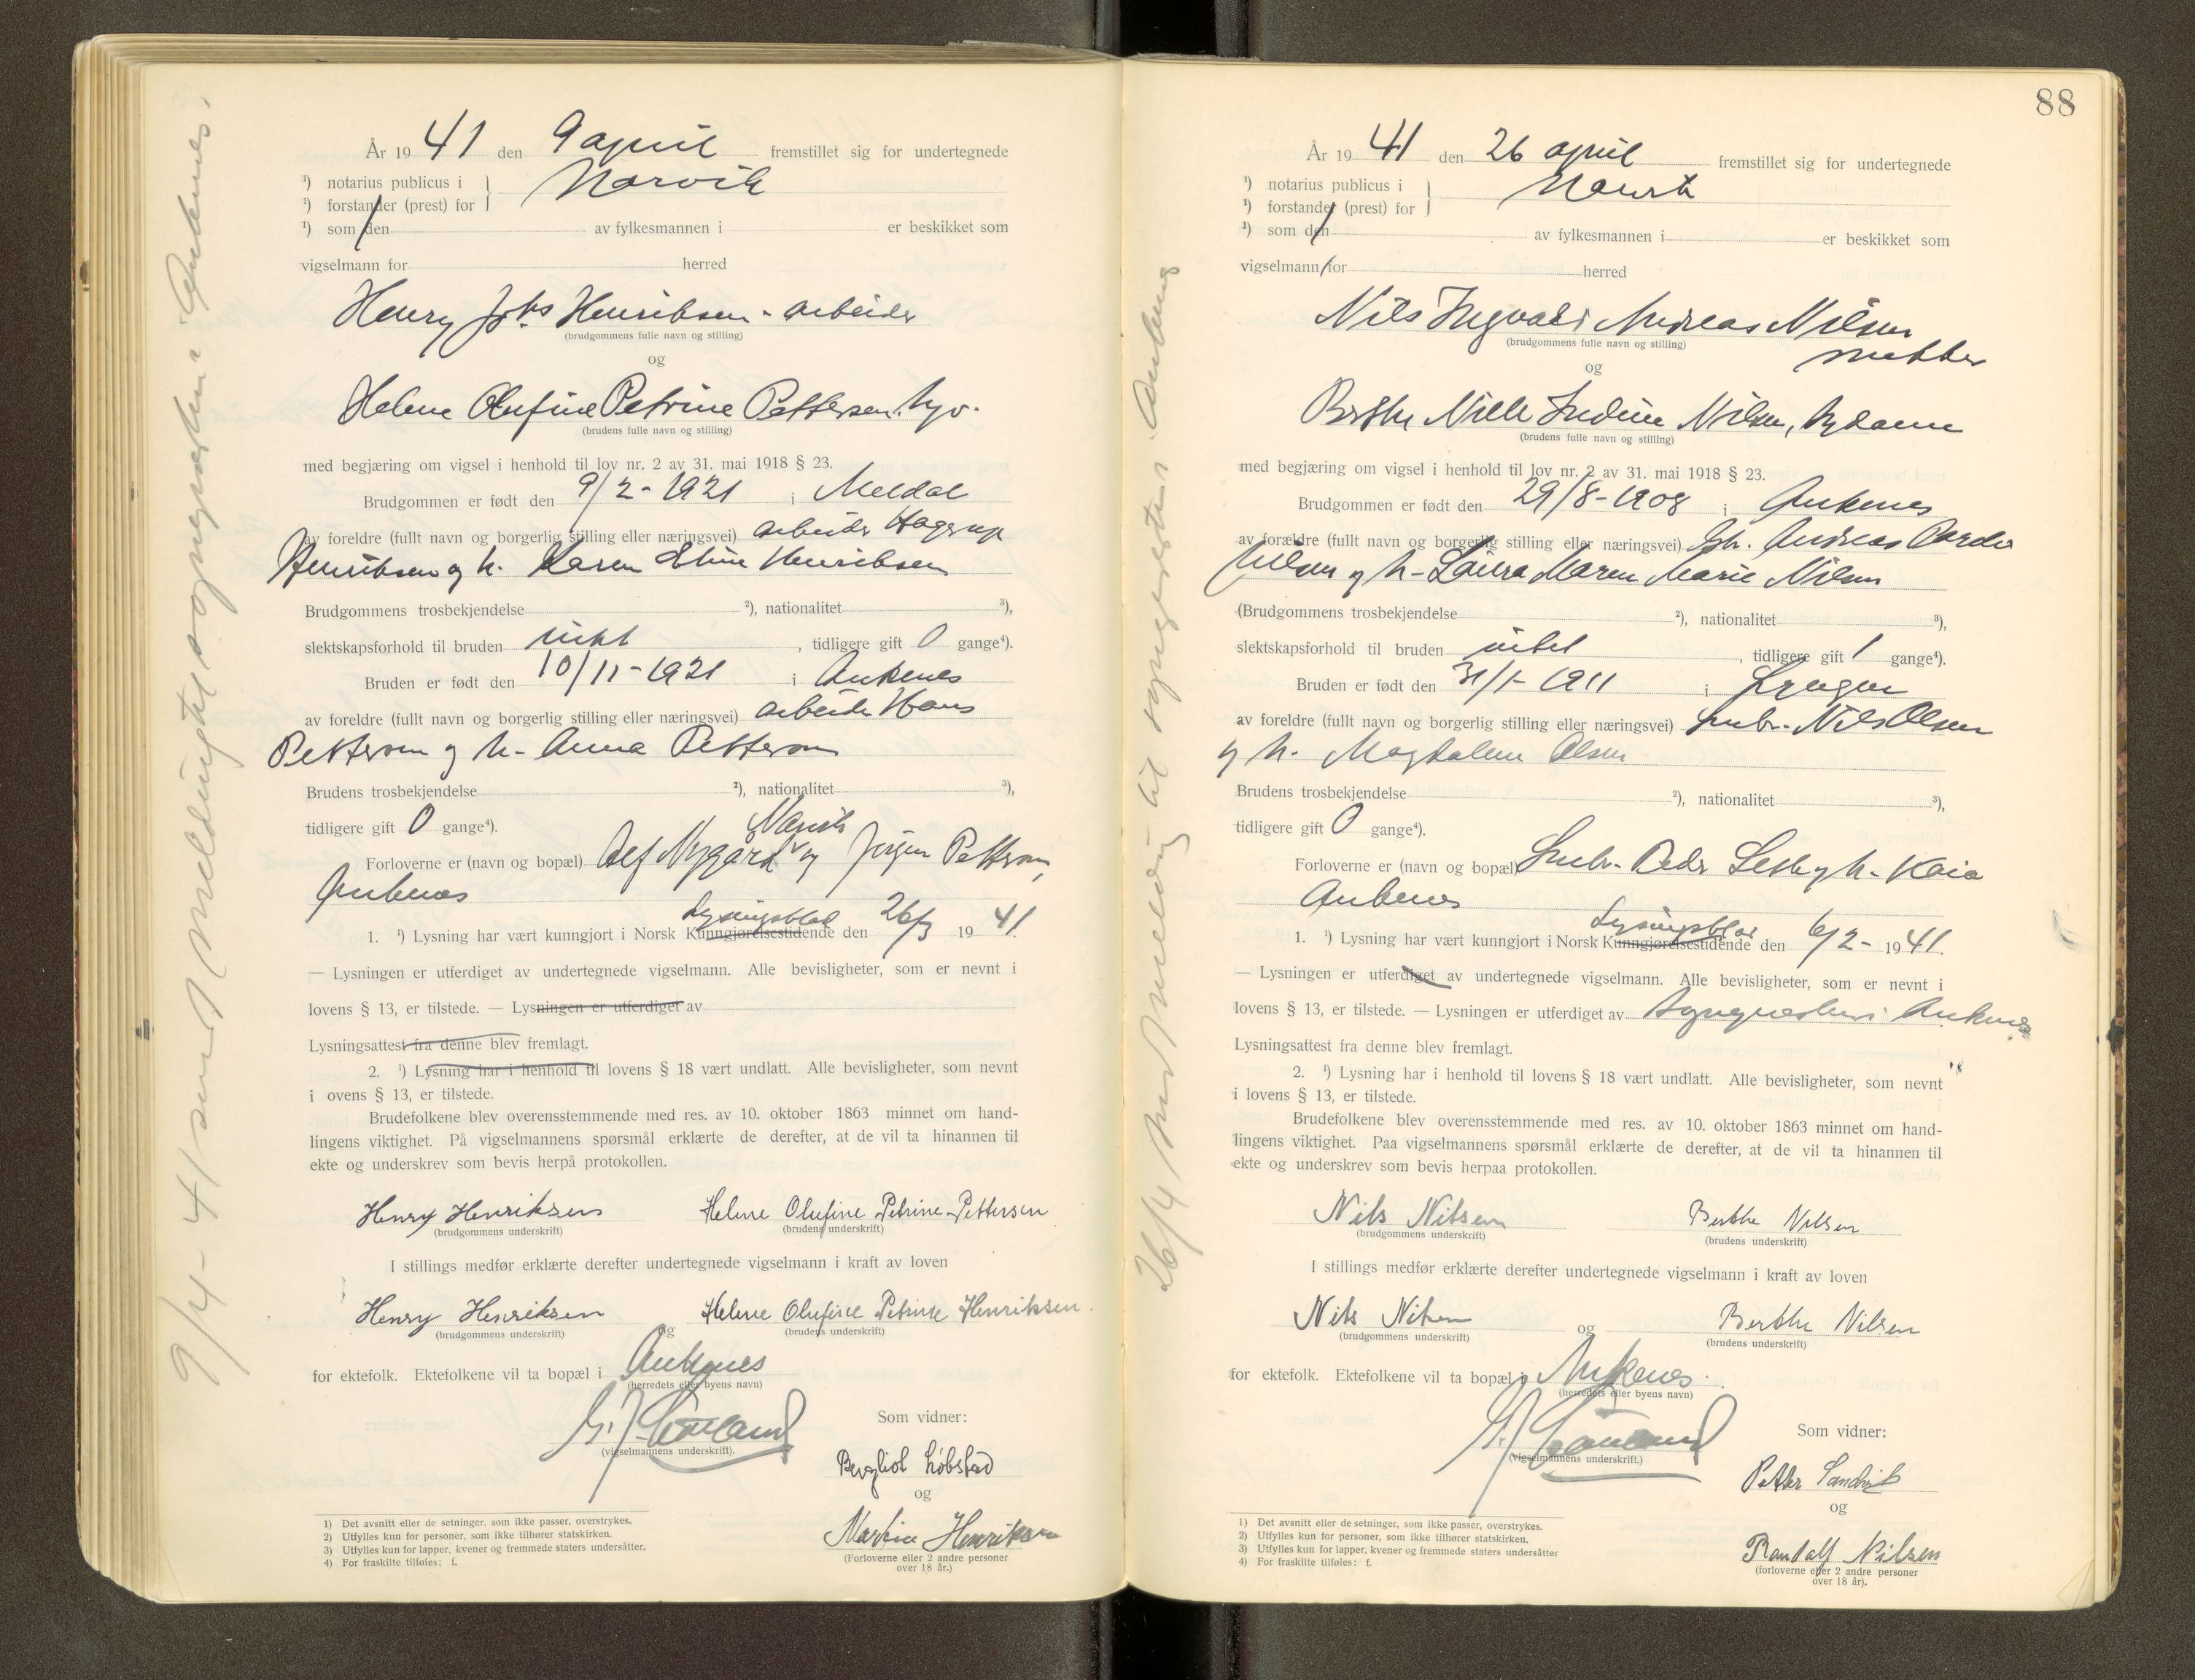 År 1941 den 9 april fremstillet sig for undertegnede
¹) notarius publicus i
¹) forstander (prest) for
Narvik
¹) som den av fylkesmannen i er beskikket som
vigselmann for herred
Henry Johs Henriksen - arbeider
(brudgommens fulle navn og stilling)
og
Helene Olufine Petrine Pettersen.
(brudens fulle navn og stilling)
med begjæring om vigsel i henhold til lov nr. 2 av 31. mai 1918 § 23.
Brudgommen er født den 9/2-1921 i Meldal
av foreldre (fullt navn og borgerlig stilling eller næringsvei) arbeider Hagerup
Henriksen og h. Karen Eline Henriksen
Brudgommens trosbekjendelse ²), nationalitet ³),
slektskapsforhold til bruden intet, tidligere gift 0 gange⁴).
Bruden er født den 10/11-1921 i Ankenes
av foreldre (fullt navn og borgerlig stilling eller næringsvei) arbeider Hans
Pettersen og h. Anna Pettersen
Brudens trosbekjendelse ²), nationalitet ³),
tidligere gift 0 gange⁴).
Narvik
Forloverne er (navn og bopæl) Alf Nygård og Jørgen Pettersen,
Ankenes
Lysningsblad
1. ¹) Lysning har vært kunngjort i Norsk Kunngjørelsestidende den 26/3 1941.
— Lysningen er utferdiget av undertegnede vigselmann. Alle bevisligheter, som er nevnt i
lovens § 13, er tilstede. — Lysningen er utferdiget av
Lysningsattest fra denne blev fremlagt.
2. ¹) Lysning har i henhold til lovens § 18 vært undlatt. Alle bevisligheter, som nevnt
i ovens § 13, er tilstede.
Brudefolkene blev overensstemmende med res. av 10. oktober 1863 minnet om hand-
lingens viktighet. På vigselmannens spørsmål erklærte de derefter, at de vil ta hinannen til
ekte og underskrev som bevis herpå protokollen.
Henry Henriksen Helene Olufine Petrine Pettersen
(brudgommens underskrift) (brudens underskrift)
I stillings medfør erklærte derefter undertegnede vigselmann i kraft av loven
Henry Henriksen og Helene Olufine Petrine Henriksen.
(brudgommens underskrift) (brudens underskrift)
for ektefolk. Ektefolkene vil ta bopæl i Ankenes
(herredets eller byens navn)
(vigselmannens underskrift).
Som vidner:
Bergliot Løbstad
og
Martin Henriksen
(Forloverne eller 2 andre personer
over 18 år.)
1) Det avsnitt eller de setninger, som ikke passer, overstrykes.
2) Utfylles kun for personer, som ikke tilhører statskirken.
3) Utfylles kun for lapper, kvener og fremmede staters undersåtter.
4) For fraskilte tilføies: f.
9/4-41 sendt melding til sognepresten i Ankenes.
88
År 1941 den 26 april fremstillet sig for undertegnede
¹) notarius publicus i
¹) forstander (prest) for
Narvik
¹) som den av fylkesmannen i er beskikket som
vigselmann for herred
Nils Ingvald Andreas Nilsen
(brudgommens fulle navn og stilling)
og
Berthe Nille Nilsen,
(brudens fulle navn og stilling)
med begjæring om vigsel i henhold til lov nr. 2 av 31. mai 1918 § 23.
Brudgommen er født den 29/8-1908 i Ankenes
av forældre (fullt navn og borgerlig stilling eller næringsvei) Andreas
Nilsen og h. Laura Maren Marie Nilsen
(Brudgommens trosbekjendelse ²), nationalitet ³),
slektskapsforhold til bruden intet, tidligere gift 1 gange⁴).
Bruden er født den 31/1-1911 i Lyngen
av foreldre (fullt navn og borgerlig stilling eller næringsvei) Småbr. Nils Olsen
og h. Magdalena Olsen
Brudens trosbekjendelse ²), nationalitet ³),
tidligere gift 0 gange⁴).
Forloverne er (navn og bopæl) Småbr. Peder og h. Kaia
Ankenes
Lysningsblad
1. ¹) Lysning har vært kunngjort i Norsk Kunngjørelsestidende den 6/2-1941.
— Lysningen er utferdiget av undertegnede vigselmann. Alle bevisligheter, som er nevnt i
lovens § 13, er tilstede. — Lysningen er utferdiget av sognepresten i Ankenes
Lysningsattest fra denne blev fremlagt.
2. ¹) Lysning har i henhold til lovens § 18 vært undlatt. Alle bevisligheter, som nevnt
i lovens § 13, er tilstede.
Brudefolkene blev overensstemmende med res. av 10. oktober 1863 minnet om hand-
lingens viktighet. Paa vigselmannens spørsmål erklærte de derefter, at de vil ta hinannen til
ekte og underskrev som bevis herpaa protokollen.
Nils Nilsen Berthe Nilsen
(brudgommens underskrift) (brudens underskrift)
I stillings medfør erklærte derefter undertegnede vigselmann i kraft av loven
Nils Nilsen og Berthe Nilsen
(brudgommens underskrift) (brudens underskrift)
for ektefolk. Ektefolkene vil ta bopæl i Ankenes.
(herredets eller byens navn)
(vigselmannens underskrift.)
Som vidner:
Petter Sandvik
og
Randolf Nilsen
(forloverne eller 2 andre personer
over 18 år).
1) Det avsnitt eller de setninger, som ikke passer, overstrykes.
2) Utfylles kun for personer, som ikke tilhører statskirken.
3) Utfylles kun for lapper, kvener og fremmede staters undersåtter
4) For fraskilte tilføies: f.
26/4 sendt melding til sognepresten i Ankenes